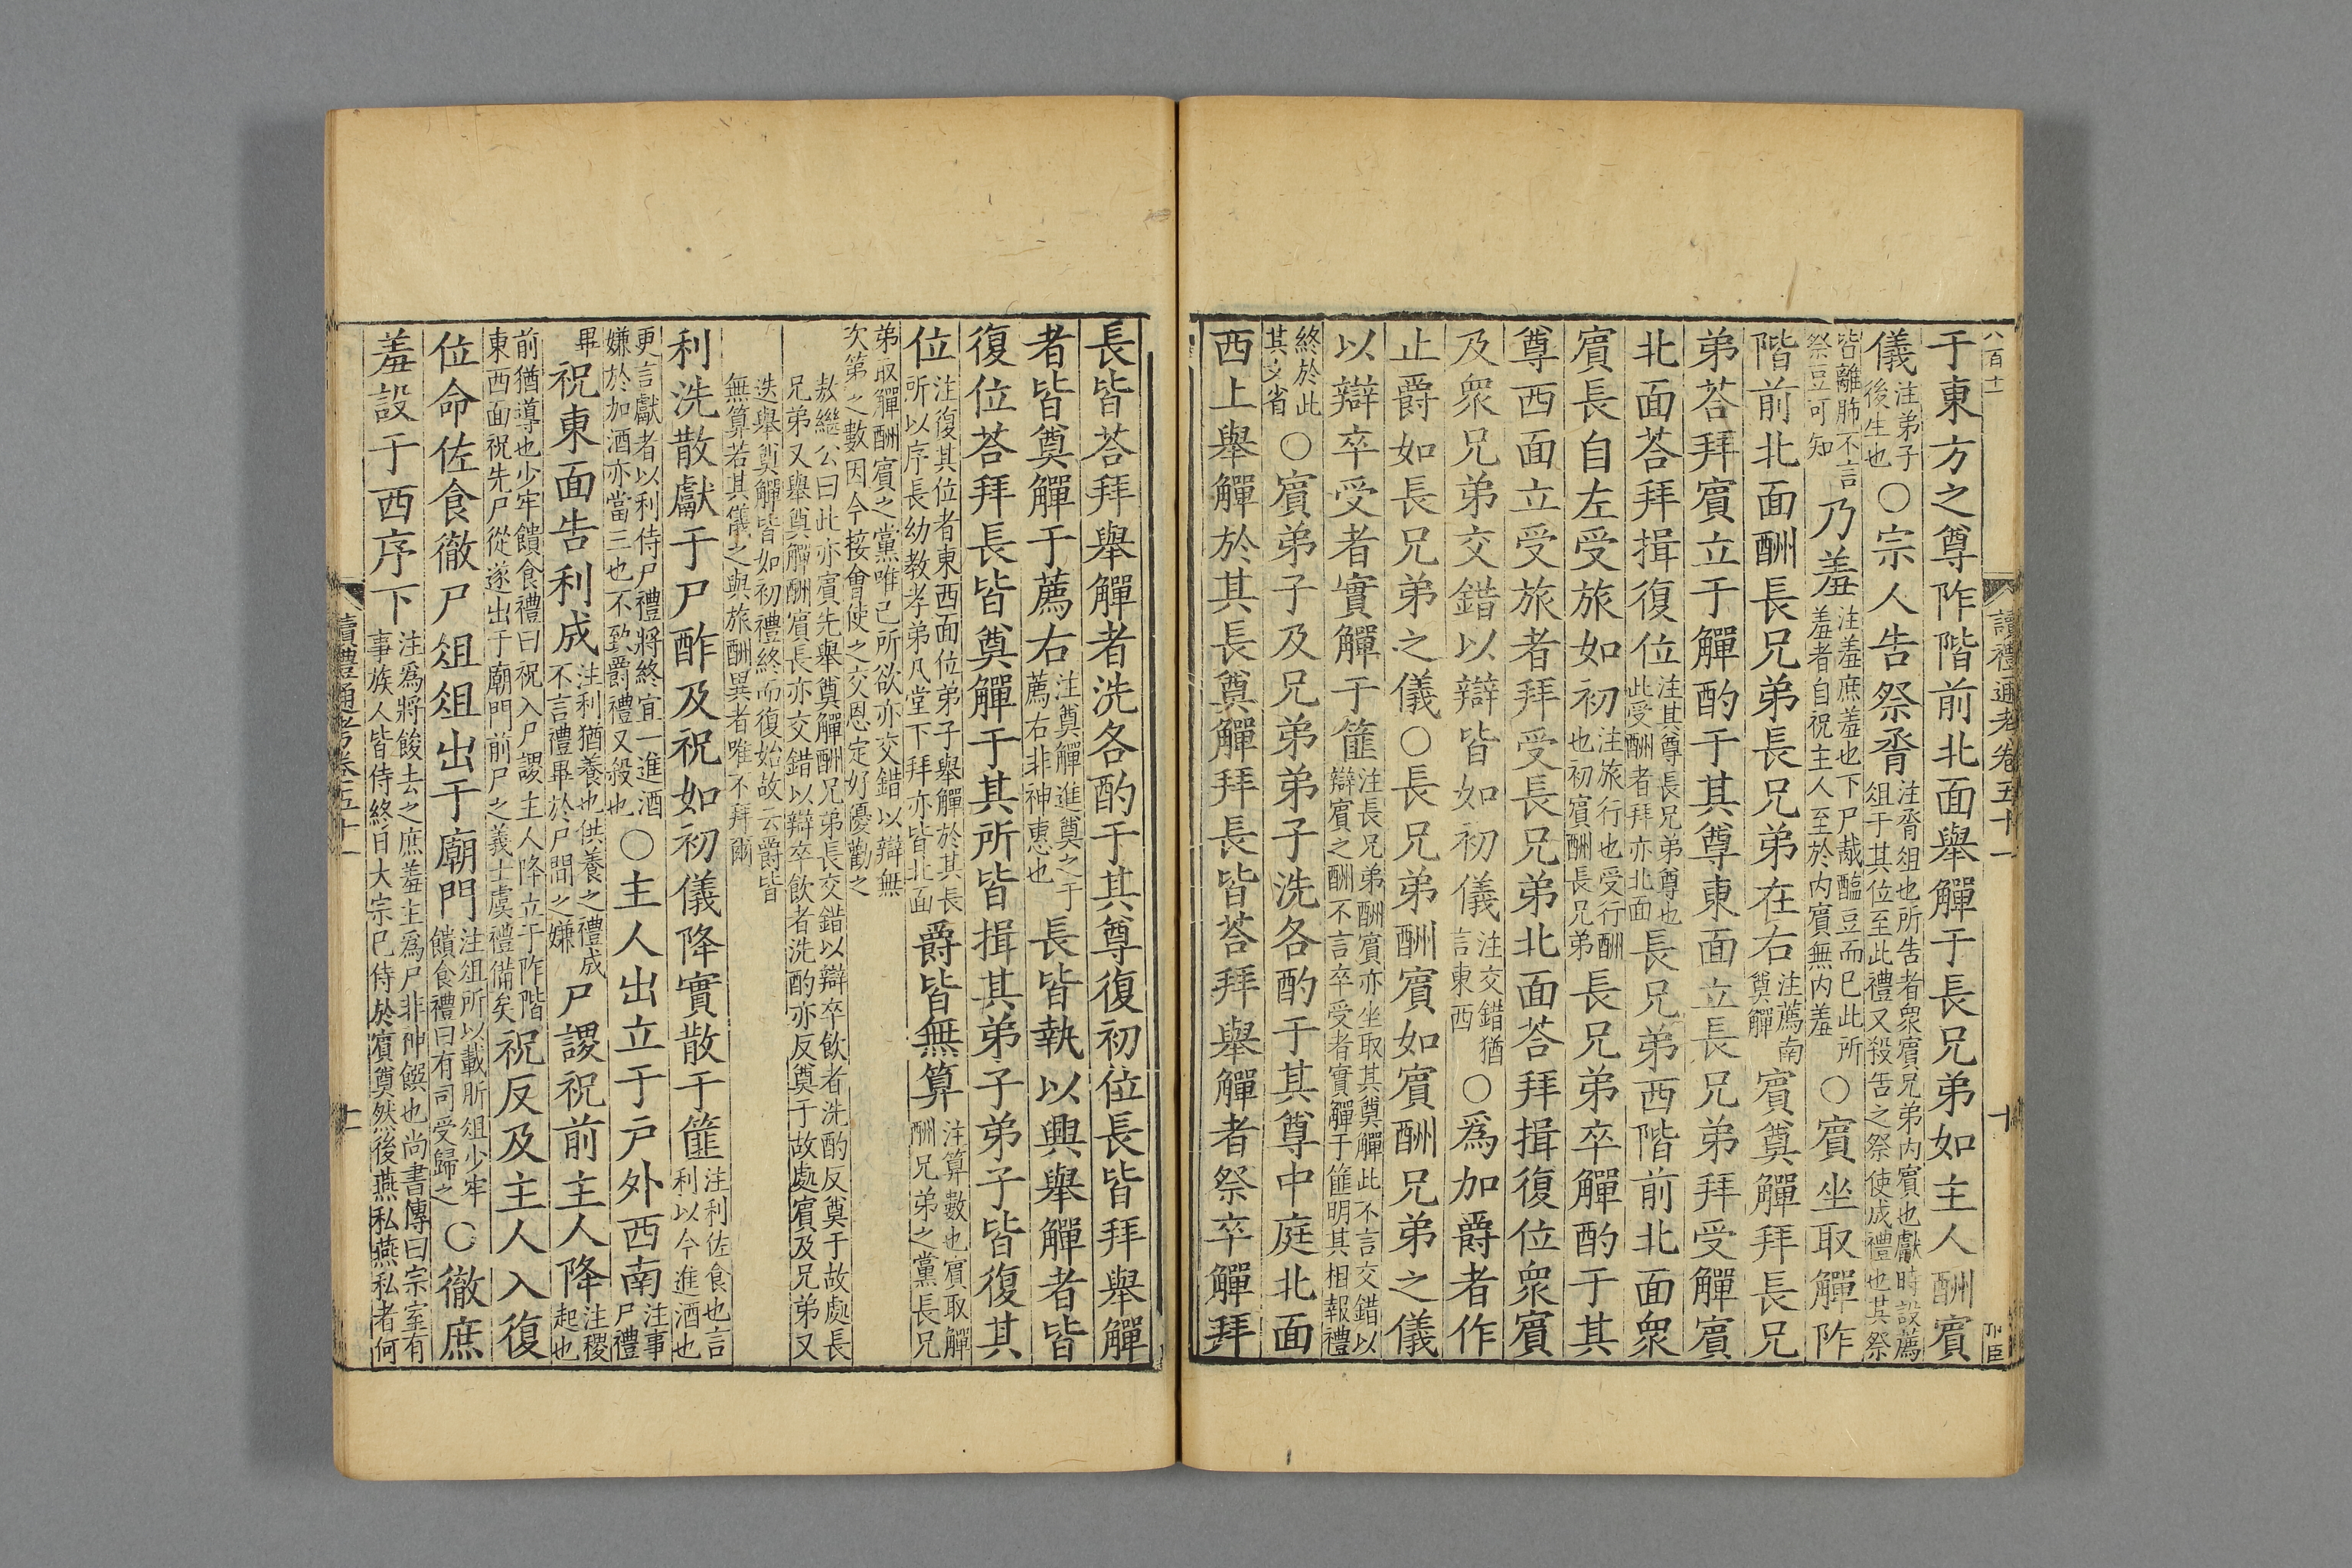 八百十一
讀禮通考卷五十一
十
于東方之尊阼階前北面舉觶于長兄弟如主人酬賓
儀注弟子後生也○宗人告祭脀注脀俎也所告者衆賓兄弟内賓也獻時設薦俎于其位至此禮又殺告之祭使成禮也其祭
皆離肺不言祭豆可知乃羞注羞庶羞也下尸胾醢豆而已此所羞者自祝主人至於内賓無内羞○賓坐取觶阼
階前北面酬長兄弟長兄弟在右注薦南奠觶賓奠觶拜長兄
弟荅拜賓立于觶酌于其尊東面立長兄弟拜受觶賓
北面荅拜揖復位注其尊長兄弟尊也此受酬者拜亦北面長兄弟西階前北面衆
賓長自左受旅如初注旅行也受行酬也初賓酬長兄弟長兄弟卒觶酌于其
尊西面立受旅者拜受長兄弟北面荅拜揖復位衆賓
及衆兄弟交錯以辯皆如初儀注交錯猶言東西○爲加爵者作
止爵如長兄弟之儀○長兄弟酬賓如賓酬兄弟之儀
以辯卒受者實觶于篚注長兄弟酬賓亦坐取其奠觶此不言交錯以辯賓之酬不言卒受者實觶于篚明其相報禮
終於此其文省○賓弟子及兄弟弟子洗各酌于其尊中庭北面
西上舉觶於其長奠觶拜長皆荅拜舉觶者祭卒觶拜
長皆荅拜舉觶者洗各酌于其尊復初位長皆拜舉觶
者皆奠觶于薦右注奠觶進奠之于薦右非神惠也長皆執以興舉觶者皆
復位荅拜長皆奠觶于其所皆揖其弟子弟子皆復其
位注復其位者東西面位弟子舉觶於其長所以序長幼教孝弟凡堂下拜亦皆北面爵皆無算注算數也賓取觶酬兄弟之黨長兄
弟取觶酬賓之黨唯己所欲亦交錯以辯無次第之數因今接會使之交恩定好優勸之
敖繼公曰此亦賓先舉奠觶酬兄弟長交錯以辯卒飲者洗酌反奠于故處長兄弟又舉奠觶酬賓長亦交錯以辯卒飲者洗酌亦反奠于故處賓及兄弟又
迭舉奠觶皆如初禮終而復始故云爵皆無算若其儀之與旅酬異者唯不拜爾
利洗散獻于尸酢及祝如初儀降實散于篚注利佐食也言利以今進酒也
更言獻者以利侍尸禮將終宜一進酒嫌於加酒亦當三也不致爵禮又殺也○主人出立于戸外西南注事尸禮
畢祝東面告利成注利猶養也供養之禮成不言禮畢於尸間之嫌尸謖祝前主人降注謖起也
前猶導也少牢饋食禮曰祝入尸謖主人降立于阼階東西面祝先尸從遂出于廟門前尸之義士虞禮備矣祝反及主人入復
位命佐食徹尸俎俎出于廟門注俎所以載肵俎少牢饋食禮曰有司受歸之○徹庶
羞設于西序下注爲將餕去之庶羞主爲尸非神饌也尚書傳曰宗室有事族人皆侍終日大宗已侍於賓奠然後燕私燕私者何
讀禮通考卷五十一
十一